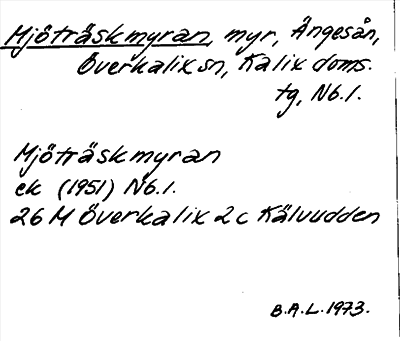 Mjöträskmyran, myr, Ängesån,
Överkalix sn, Kalix doms.
tg, Nb.l.
Mjöträskmyran
ek (1951) Nb.l.
26 M Överkalix 2 c Kälvudden
B.A.L. 1973.